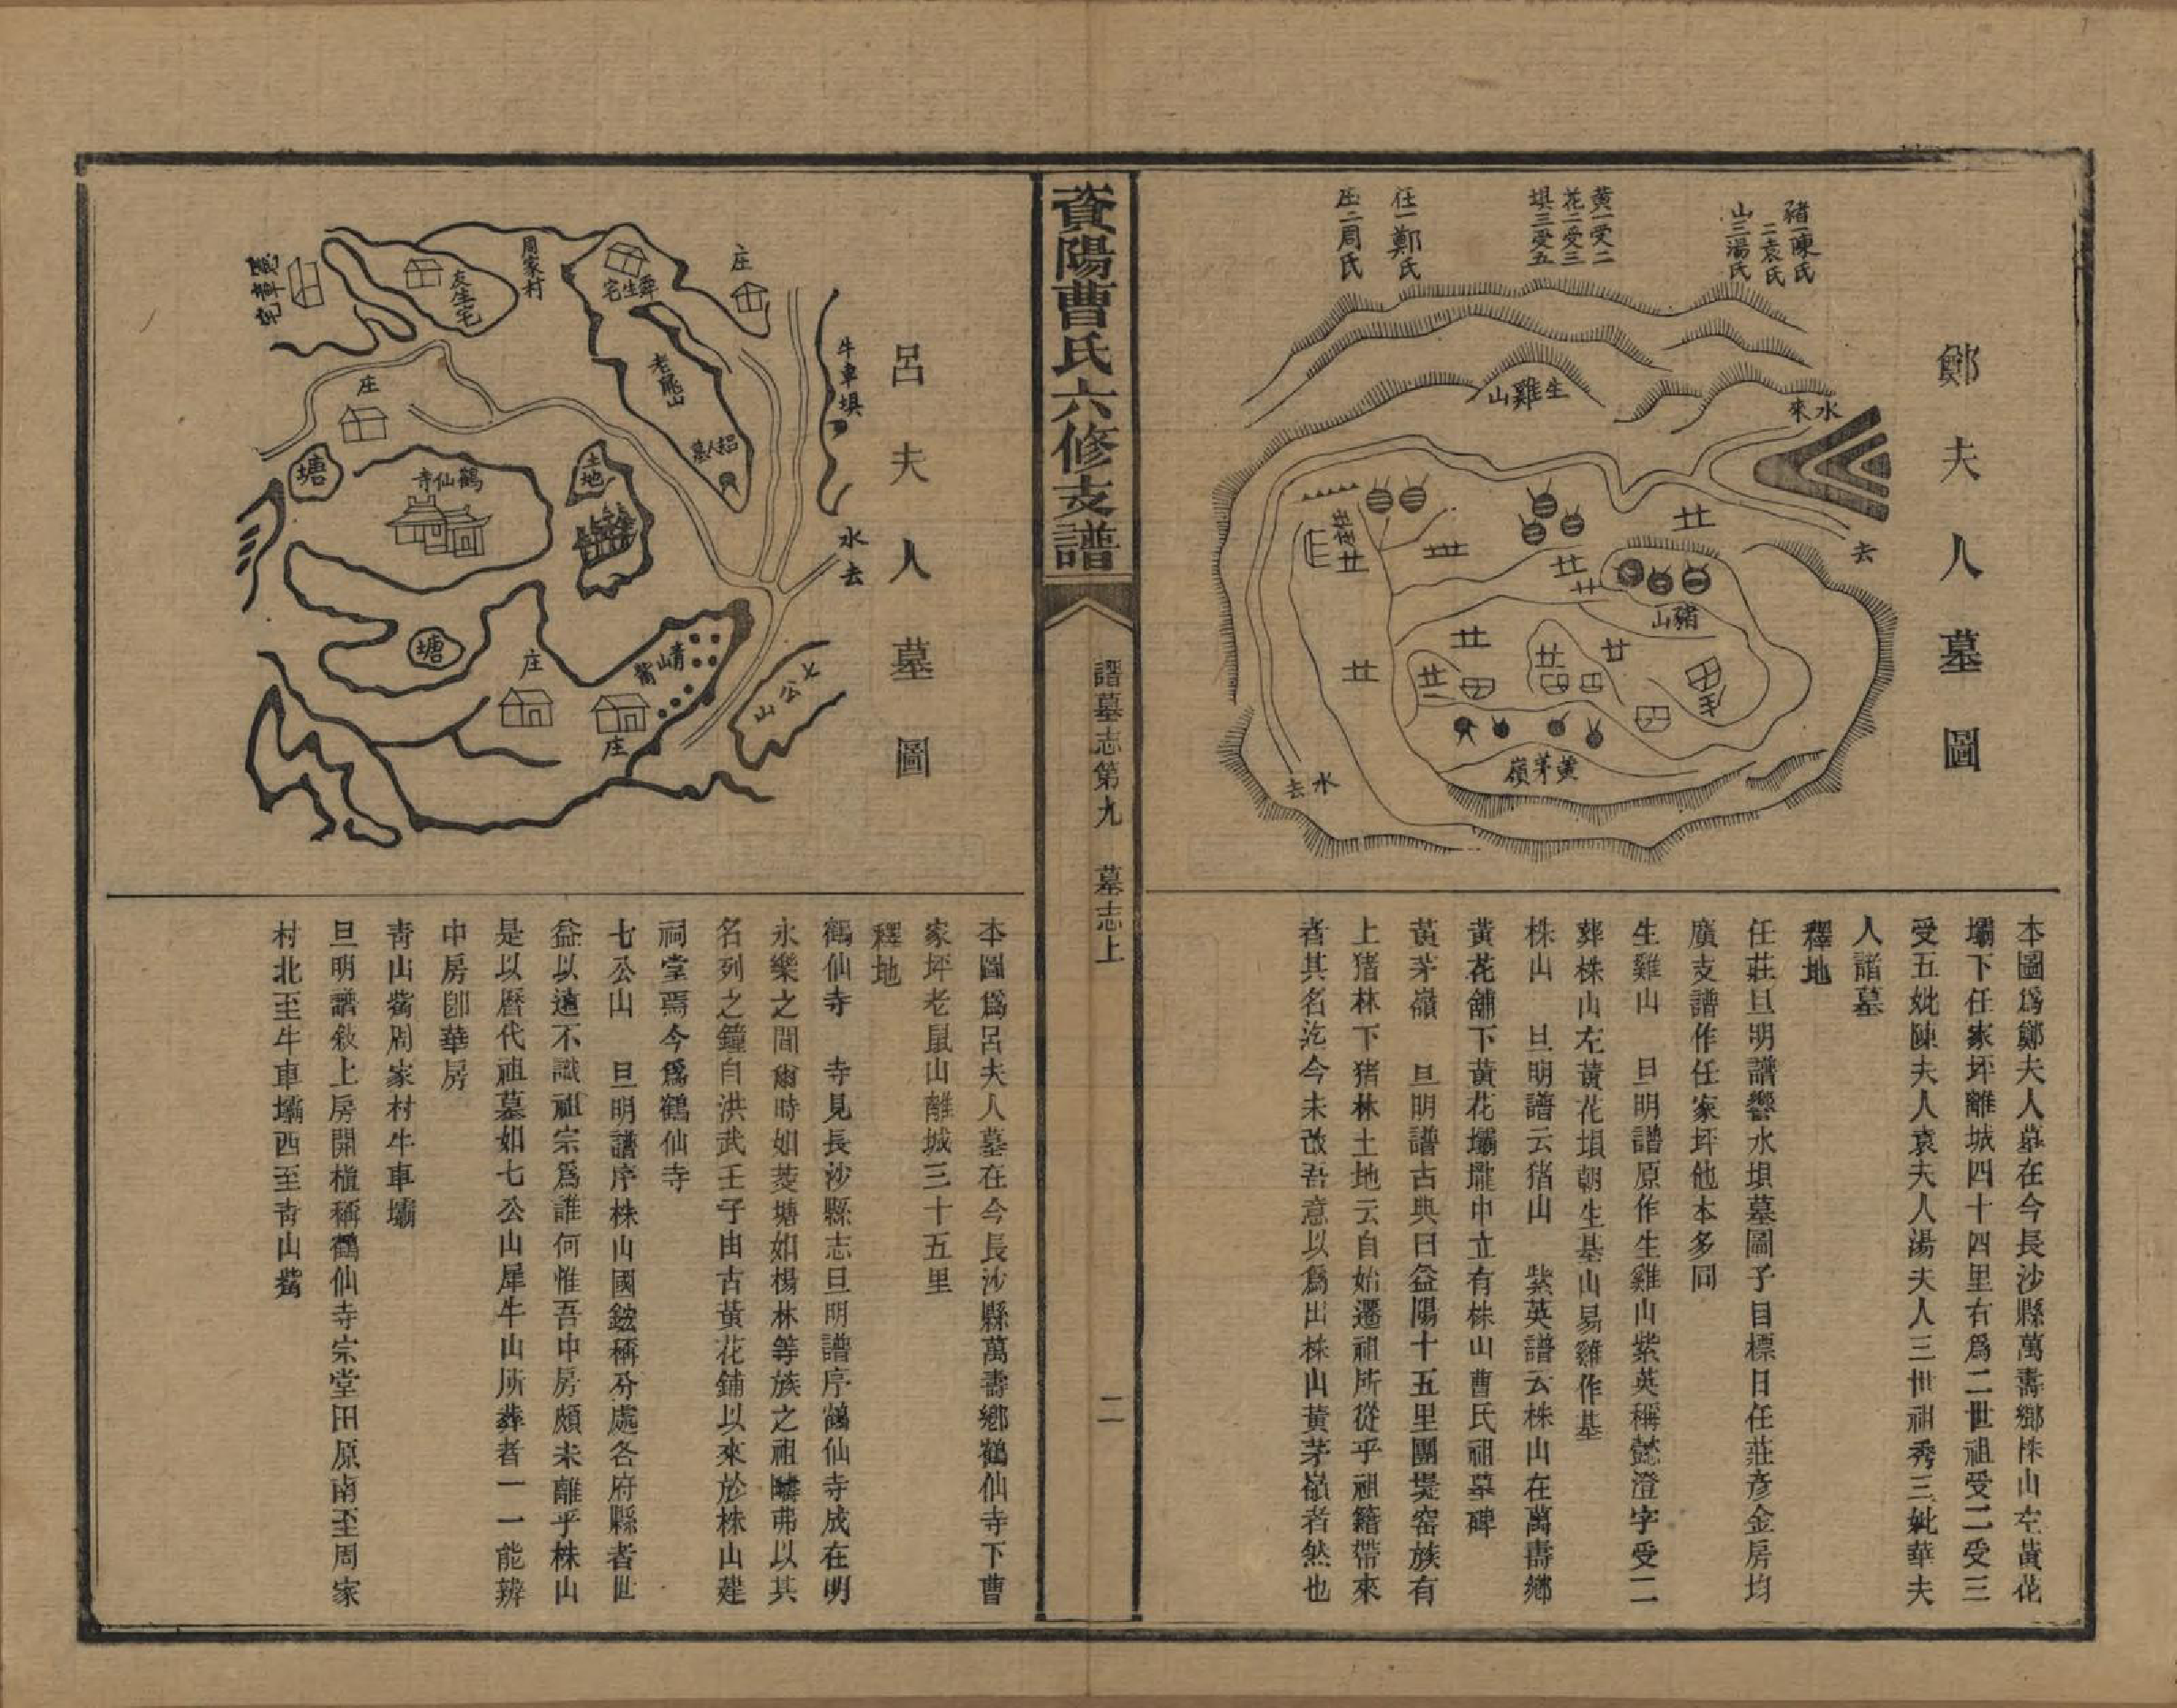 鄭夫人墓圖
豬一陳氏
二袁氏
山三湯氏
黃一受二
花二受三
垻三受五
任一鄭氏
庄二周氏
生雞山
水來
去
任庄
豬山
黃茅嶺
水去
本圖爲鄭夫人墓在今長沙縣萬壽鄉株山左黃花
壩下任家坪離城四十四里右爲二世祖受二受三
受五妣陳夫人袁夫人湯夫人三世祖秀三妣華夫
人諸墓
釋地
任莊旦明譜響水垻墓圖子目標日任莊彥金房均
廣支譜作任家坪他本多同
生雞山　旦明譜原作生雞山紫英稱懿澄字受二
葬株山左黃花垻朝生基山易雞作基
株山　旦明譜云猪山　紫英譜云株山在萬壽鄉
黃花舖下黃花壩壠中立有株山曹氏祖墓碑
黃茅嶺　旦明譜古典曰益陽十五里團堤窑族有
上猪林下猪林土地云自始遷祖所從乎祖籍帶來
者其名迄今未改吾意以爲出株山黃茅嶺者然也
資陽曹氏六修支譜
譜墓志第九　墓志上
二
呂夫人墓圖
牛車垻
水去
庄
周家村
友生宅
宅
老鼠山
呂人墓
庄
塘
鶴仙寺
土地
塘
庄
庄
青山嘴
七公山
本圖爲呂夫人墓在今長沙縣萬壽鄉鶴仙寺下曹
家坪老鼠山離城三十五里
釋地
鶴仙寺　寺見長沙縣志旦明譜序鶴仙寺成在明
永樂之間爾時如菱塘如楊林等族之祖疇弗以其
名列之鐘自洪武壬子由古黃花鋪以來於株山建
祠堂焉今爲鶴仙寺
七公山　旦明譜序株山國鋐稱分處各府縣者世
益以遠不識祖宗爲誰何惟吾中房頗未離乎株山
是以曆代祖墓如七公山犀牛山所葬者一一能辨
中房卽華房
靑山嘴周家村牛車壩
旦明譜敘上房開植稱鶴仙寺宗堂田原南至周家
村北至牛車壩西至靑山嘴